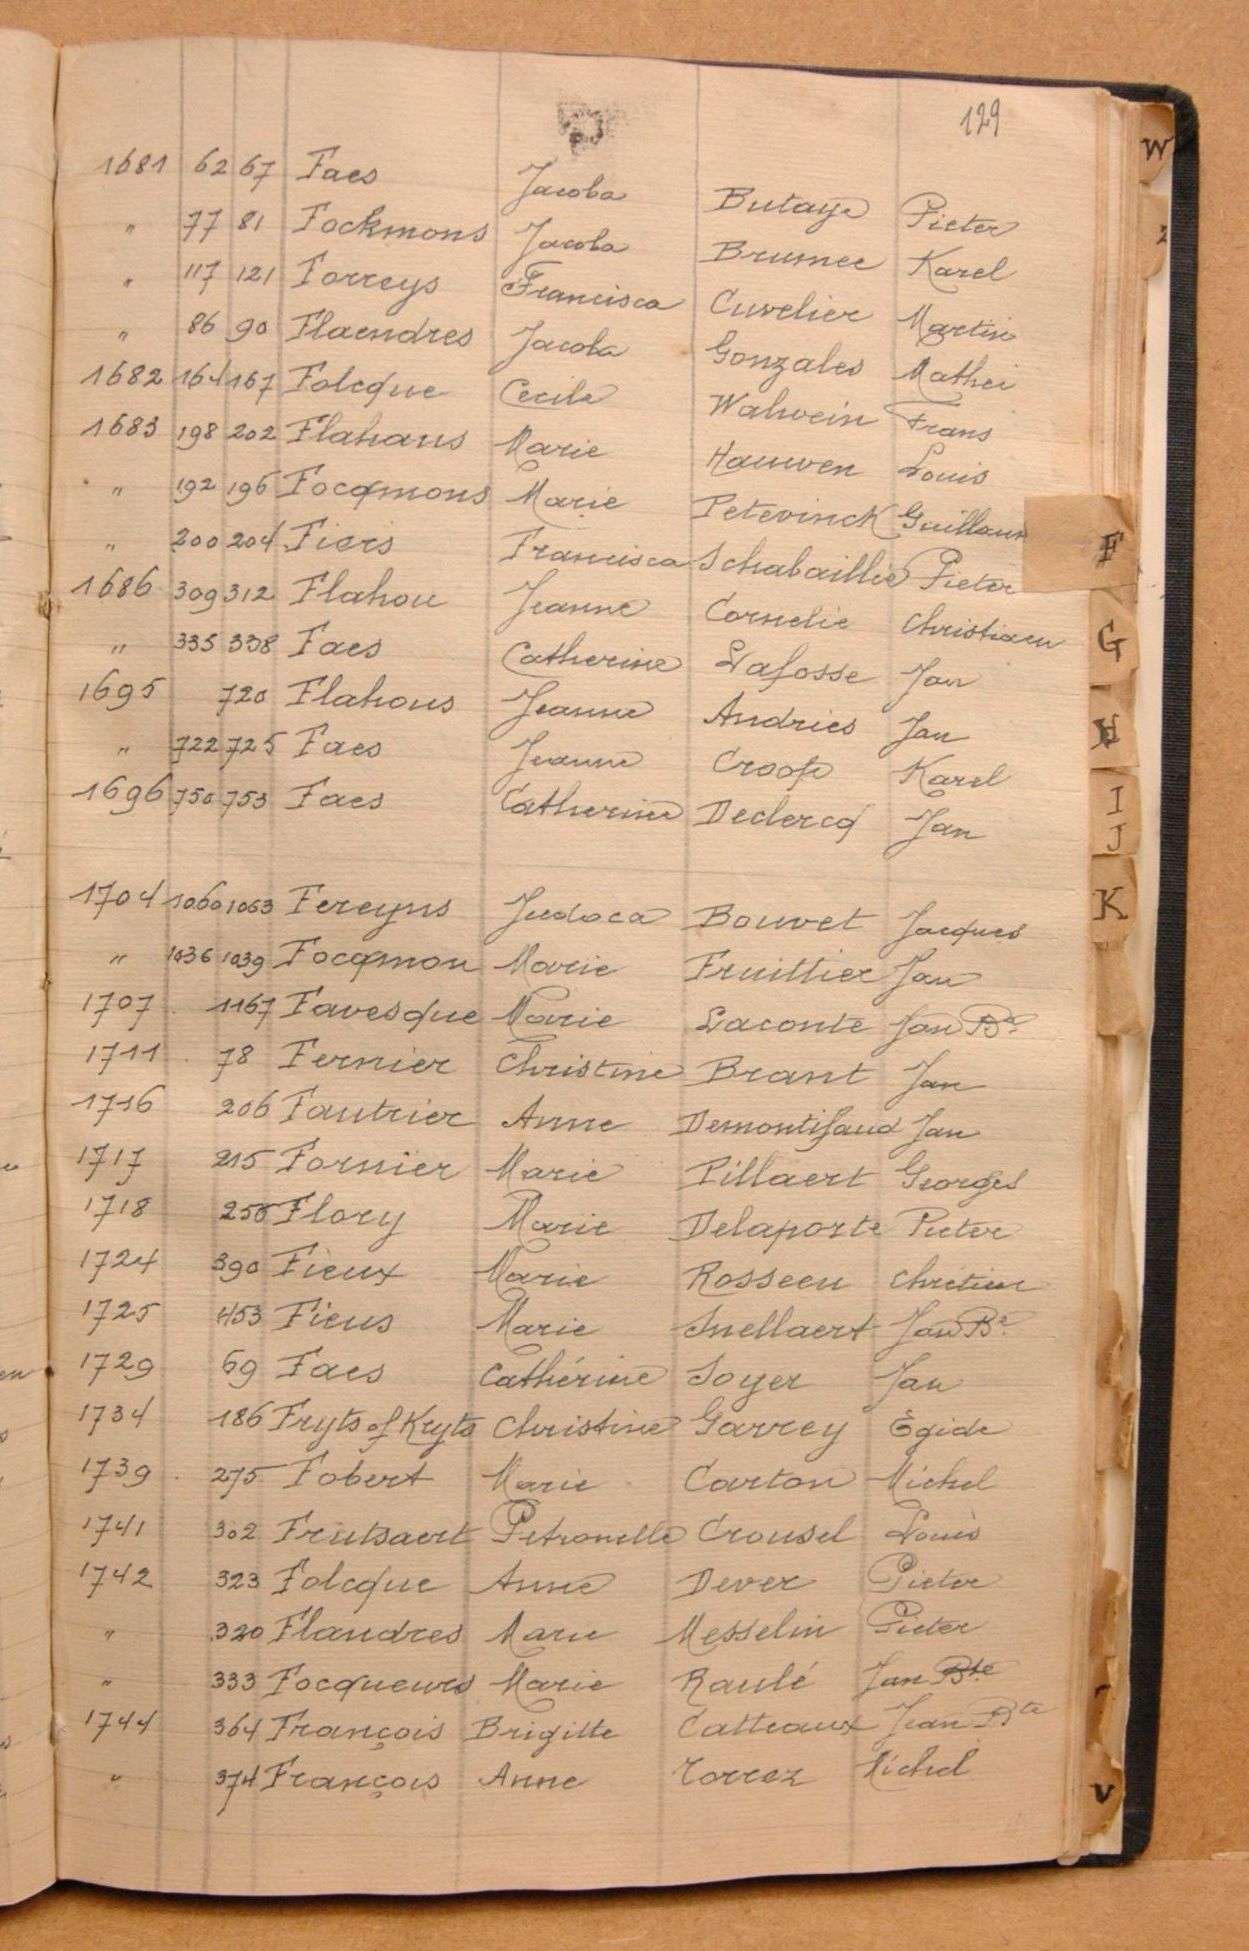 129
1681 62 67 Faes Jacoba Butaye Pieter
" 77 81 Fockmons Jacoba Brumee Karel
" 117 121 Forreys Francisca Cuvelier Martin
" 86 90 Flaendres Jacoba Gonzales Mathei
1682 164 167 Folcque Cecile Walwein Frans
1683 198 202 Flahaus Marie Hauwen Louis
" 192 196 Focqmons Marie Petevinck Guillaum
" 200 204 Fiers Francisca Schabaillie Pieter
1686 309 312 Flahou Jeanne Cornelie Christiaen
" 335 338 Faes Catherine Lafosse Jan
1695 720 Flahous Jeanne Andries Jan
" 722 725 Faes Jeanne Croop Karel
1696 750 753 Faes Catherine Declercq Jan
1704 1060 1063 Fereyns Judoca Bouvet Jacques
" 1036 1039 Focqmon Marie Fruittier Jan
1707 1167 Favesque Marie Laconte Jan Bte
1711 78 Fernier Christine Brant Jan
1716 206 Fautrier Anne Demontifaud Jan
1717 215 Fornier Marie Pillaert Georges
1718 250 Flory Marie Delaporte Pieter
1724 390 Fieux Marie Rosseeu Chrétien
1725 453 Fieus Marie Snellaert Jan Bte
1729 69 Faes Cathérine Soyer Jan
1734 186 Fryts of Kryts Christine Garrey Egide
1739 275 Fobert Marie Carton Michel
1741 302 Frutsaert Petronelle Crousel Louis
1742 323 Folcque Anne Dever Pieter
" 320 Flandres Marie Messelin Pieter
" 333 Focqueurs Marie Raulé Jan Bte
1744 364 François Brigitte Catteaux Jean Bte
" 374 François Anne Torrez Michel
W
Z
F
G
H
I
J
K
V